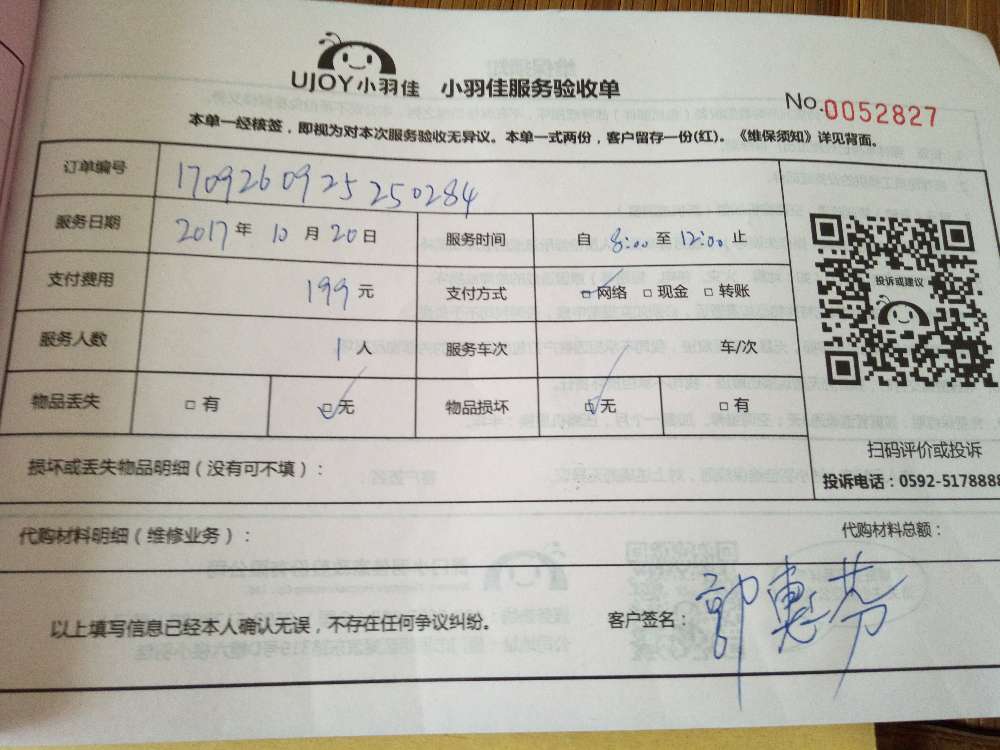 UJOY小羽佳 小羽佳服务验收单
No.0052827
本单一经核签，即视为对本次服务验收无异议。本单一式两份，客户留存一份(红)。《维保须知》详见背面。
订单编号 170926 0925 250284
服务日期 2017年 10月 20日 服务时间 自 8:00 至 12:00 止
支付费用 199 元 支付方式 ☑网络 □现金 □转账
服务人数 1 人 服务车次 车/次
物品丢失 □有 ☑无 物品损坏 ☑无 □有
投诉或建议
扫码评价或投诉
投诉电话：0592-5178888
损坏或丢失物品明细（没有可不填）：
代购材料明细（维修业务）： 代购材料总额：
以上填写信息已经本人确认无误，不存在任何争议纠纷。 客户签名：郭惠芬